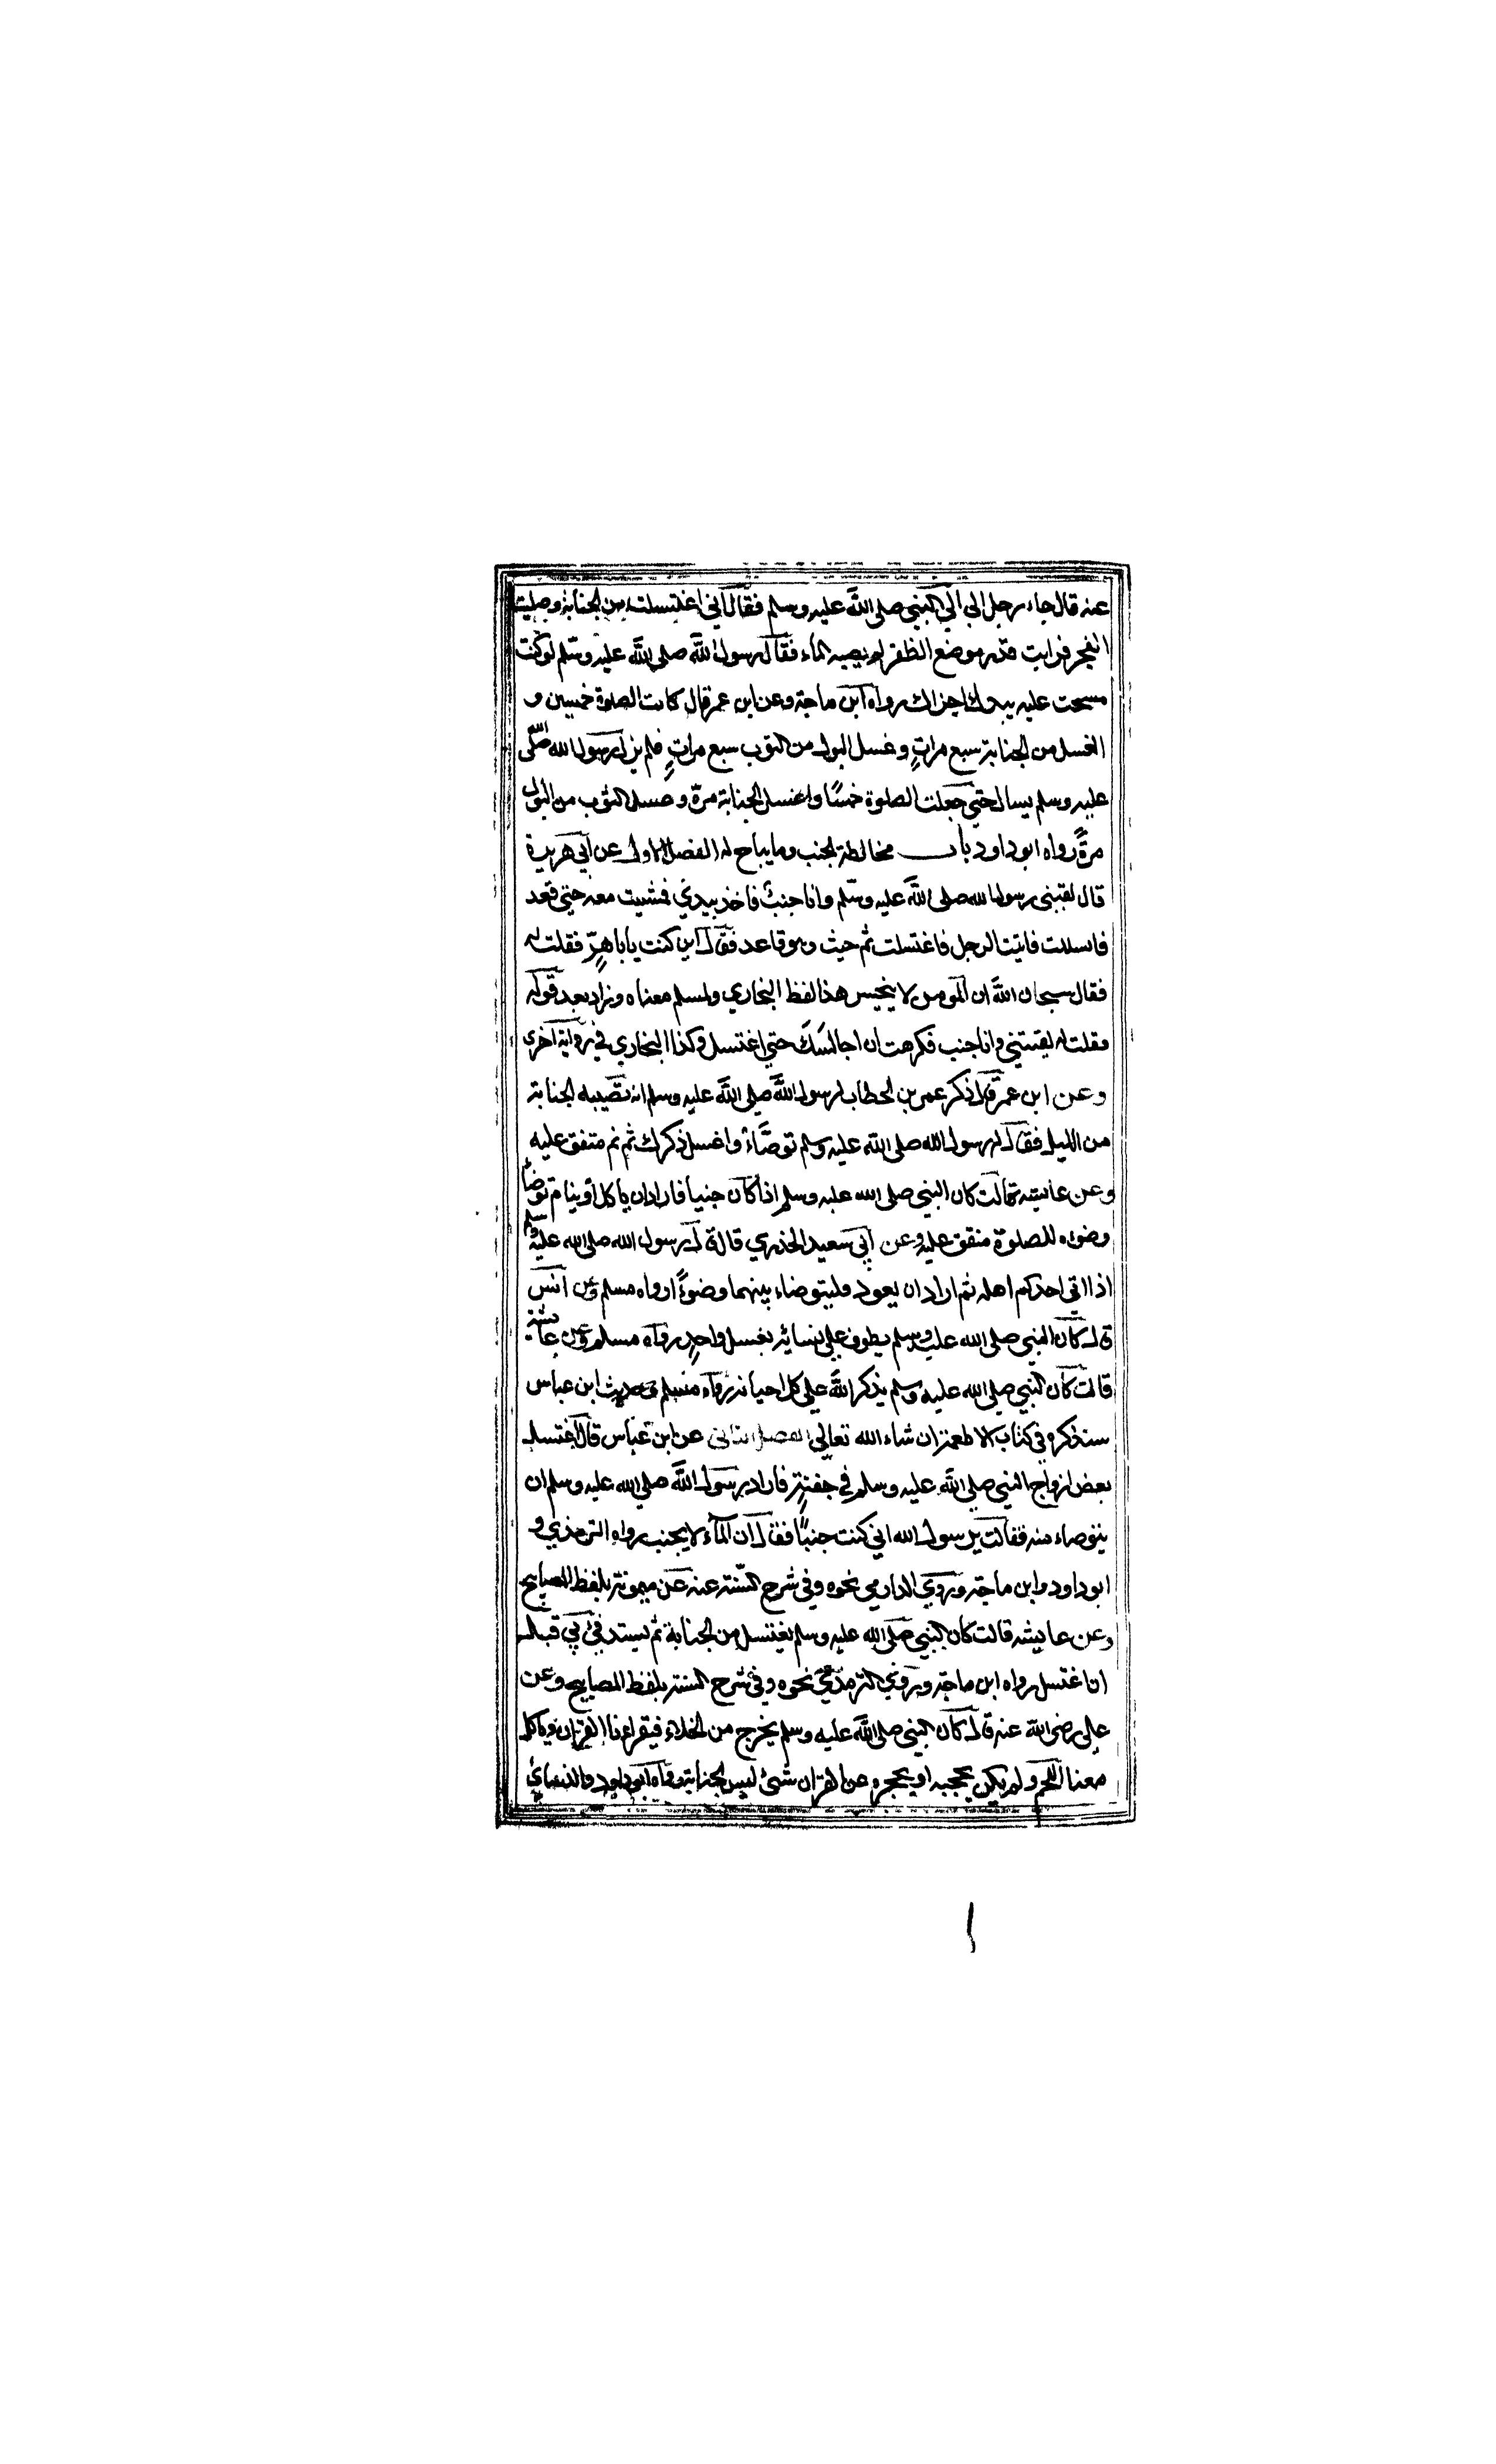 عنه قال جاء رجل الى الى النبي صلى الله عليه وسلم فقال اني اغتسلت من الجنابة وصليت
الفجر فرايت قدر موضع الظفر لم يصبه الماء فقال رسول الله صلى الله عليه وسلم لو كنت
مسحت عليه بيدك اجزاك رواه ابن ماجة وعن ابن عمر قال كانت الصلوة خمسين و
الغسل من الجنابة سبع مراتٍ وغسل البول من الثوب سبع مراتٍ فلم يزل رسول الله صلى الله
عليه وسلم يسال حتي جعلت الصلوة خمسًا واغسل الجنابة مرّة وغسل الثوب من البول
مرةً رواه ابو داود باب مخالطة الجنب وما يباح له الفصل الاول عن ابي هريرة
قال لقيني رسول الله صلى الله عليه وسلم وانا جنبٌ فاخذ بيدي فمشيت معه حتي قعد
فانسللت فاتيت الرجل فاغتسلت ثم جئت وهو قاعد فقال اين كنت يا با هرٍّ فقلت له
فقال سبحان الله ان المومن لا ينجس هذا لفظ البخاري ولمسلم معناه وزاد بعد قوله
فقلت له لقيتني وانا جنب فكرهت ان اجالسك حتي اغتسل وكذا البخاري في رواية اخرى
وعن ابن عمر قال ذكر عمر بن الخطاب لرسول الله صلى الله عليه وسلم انه تصيبه الجنابة
من الليل فقال له رسول الله صلى الله عليه وسلم توضّاء واغسل ذكرك ثم نم متفق عليه
وعن عايشة قالت كان النبي صلى الله عليه وسلم اذا كان جنبا فاراد ان ياكل او ينام توضأ
وضوءه للصلوة متفق عليه وعن ابي سعيد الخذري قال قال رسول الله صلى الله عليه وسلم
اذا اتى احدكم اهله ثم اراد ان يعود فليتوضاء بينهما وضوءًا رواه مسلم وعن انس
قال كان النبي صلى الله عليه وسلم يطوف على نسائه بغسل واحدٍ رواه مسلم وعن عايشة
قالت كان النبي صلى الله عليه وسلم يذكر الله علي كل احيانه رواه مسلم وحديث ابن عباس
سنذكره في كتاب الاطعمة ان شاء الله تعالي الفصل الثاني عن ابن عباس قال اغتسل
بعض ازواج النبي صلى الله عليه وسلم في جفنةٍ فاراد رسول الله صلي الله عليه وسلم ان
يتوضاء منه فقالت يرسول الله اني كنت جنبًا فقال ان المآء لا يجنب رواه الترمذي و
ابو داود وابن ماجة وروي الدارمي نحوه وفي شرح السّنة عنه عن ميمونة بلفظ المصابيح
وعن عايشه قالت كان النبي صلى الله عليه وسلم يغتسل من الجنابة ثم يستدفئ بي قبل
ان اغتسل رواه ابن ماجة وروي الترمذي نحوه وفي شرح السنة بلفظ المصابيح وعن
على رضى الله عنه قال كان النبي صلى الله عليه وسلم يخرج من الخلاء فيقراءنا القران وياكل
معنا اللحم ولم يكن يحجبه او يحجزه عن القران شئ ليس الجنابة رواه ابو داود والنسائي